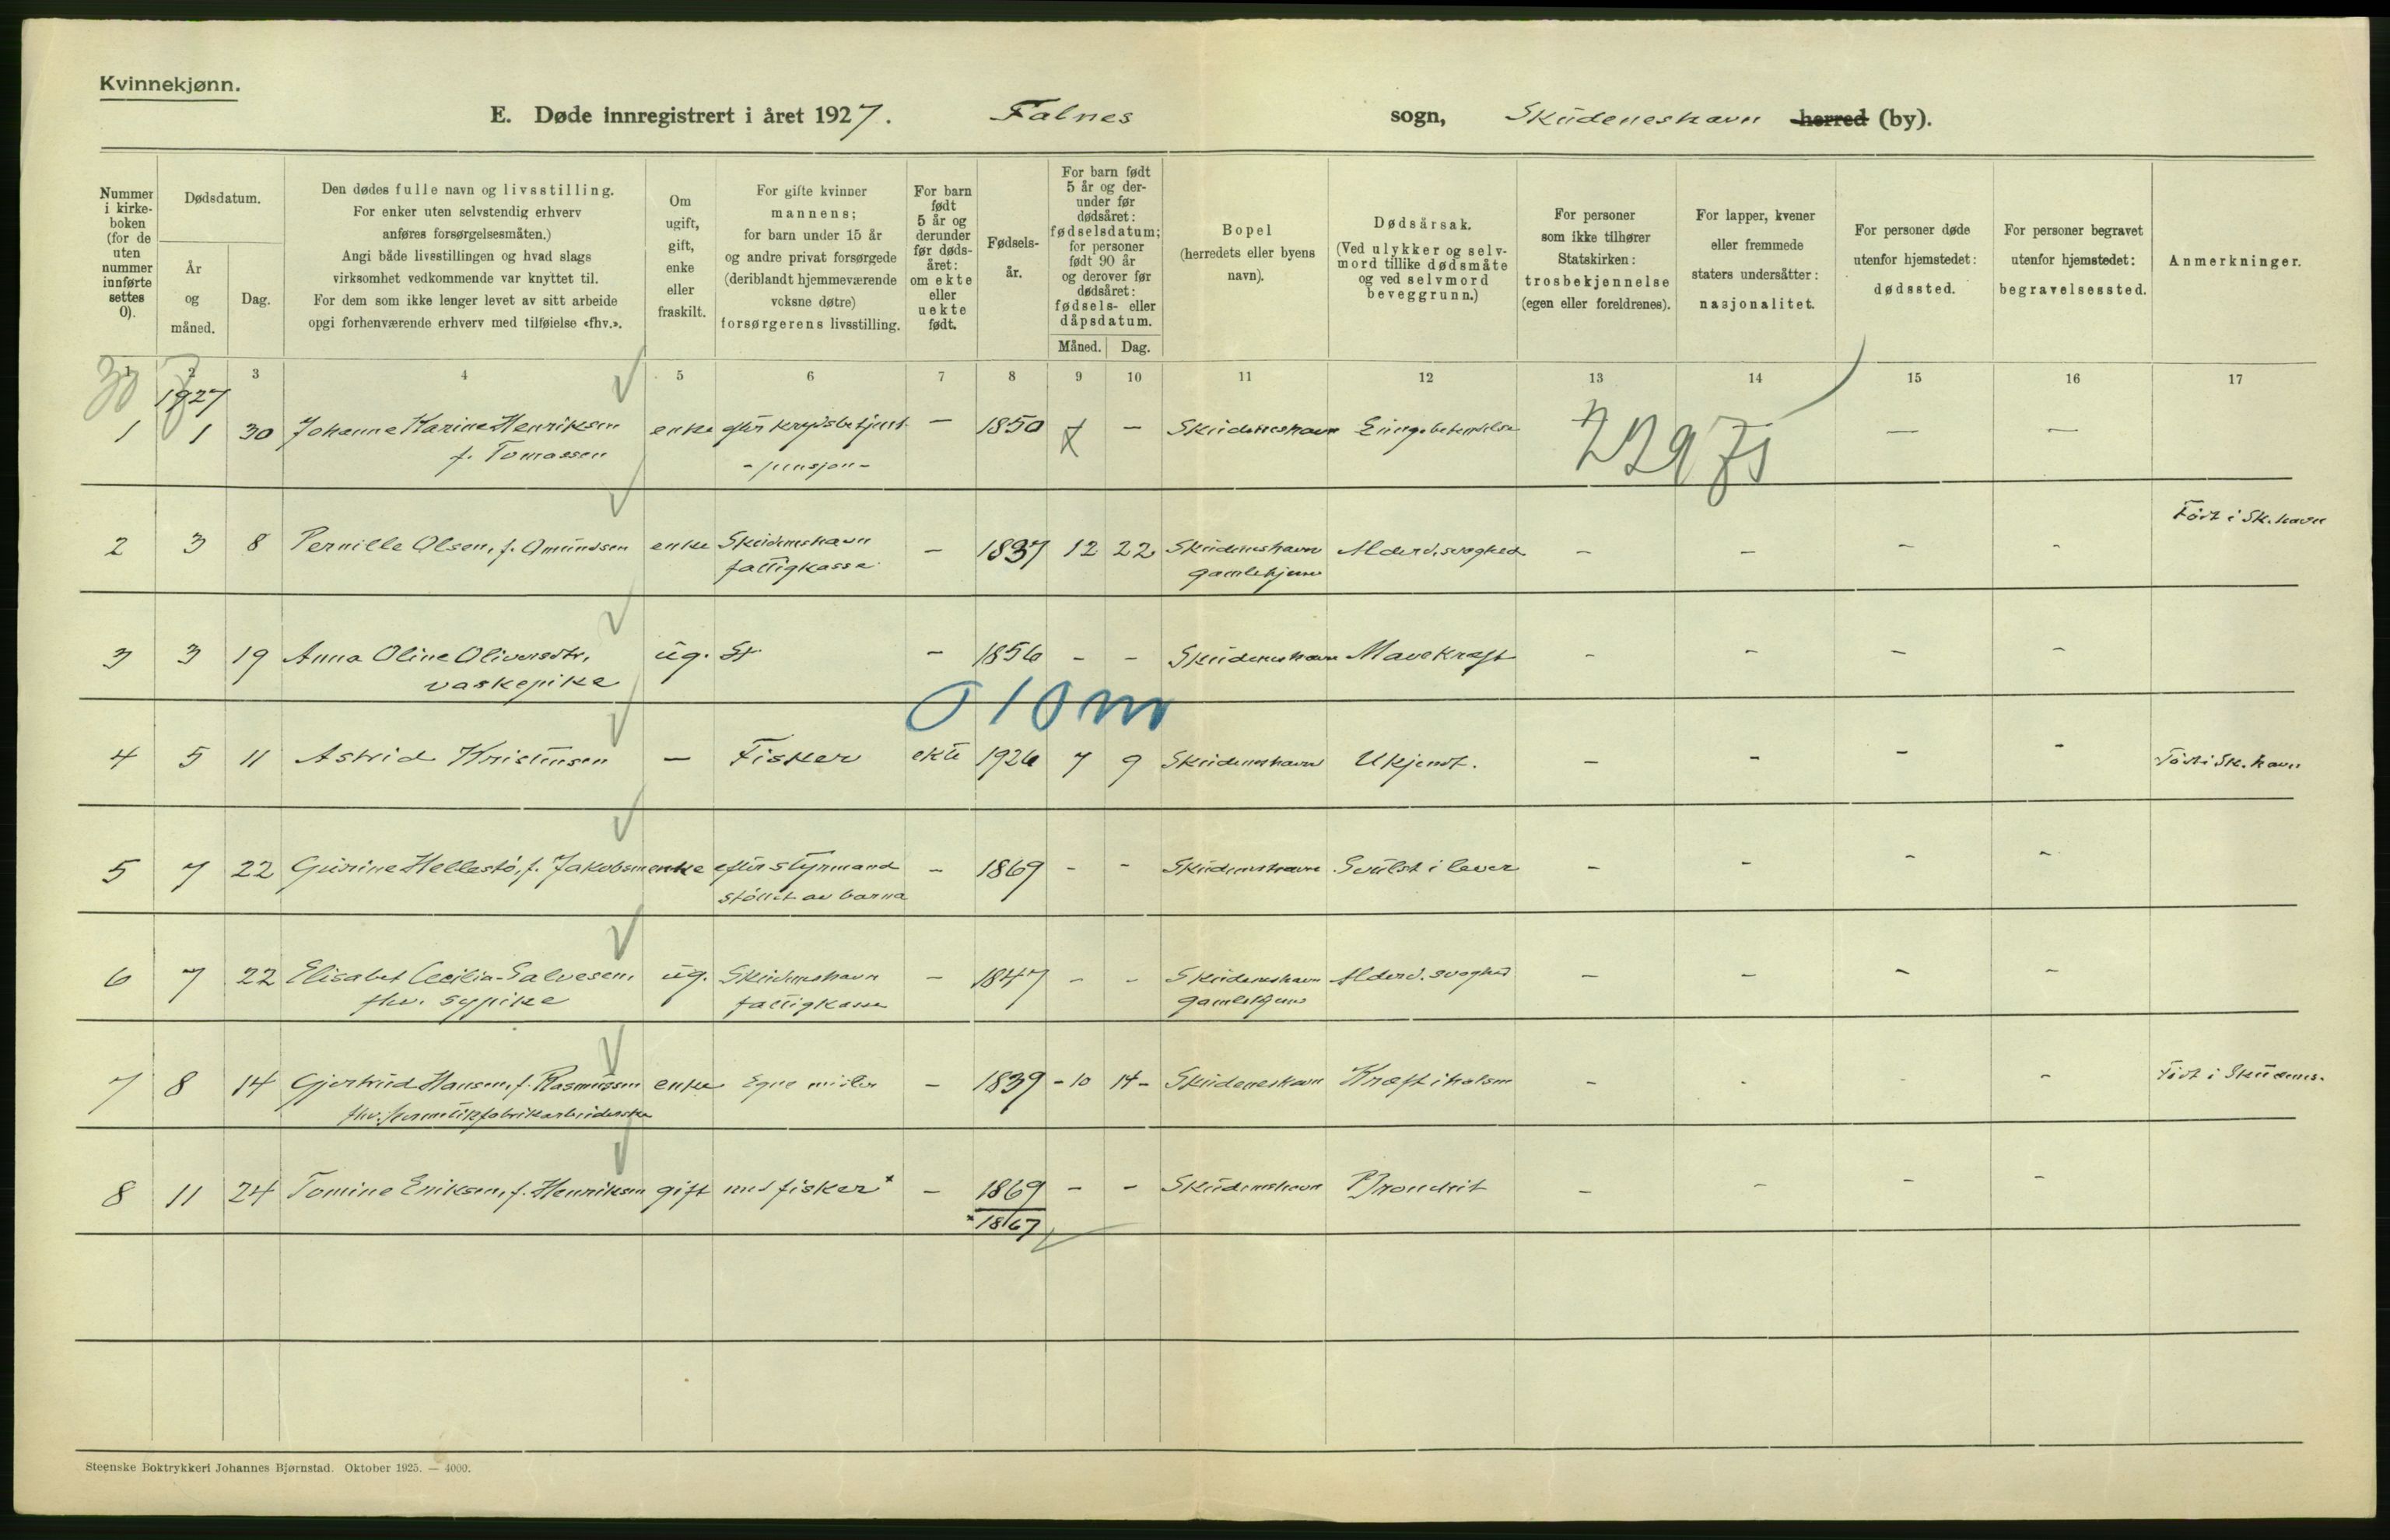 Kvinnekjønn.
E. Døde innregistrert i året 1927. Falnes sogn, Skudeneshavn herred (by).
Nummer i kirke- boken (for de uten nummer innførte settes 0).
Dødsdatum.
År og måned.
Dag.
Den dødes fulle navn og livsstilling.
For enker uten selvstendig erhverv
anføres forsørgelsesmåten.)
Angi både livsstillingen og hvad slags
virksomhet vedkommende var knyttet til.
For dem som ikke lenger levet av sitt arbeide
opgi forhenværende erhverv med tilføielse «fhv.».
Om ugift, gift, enke eller fraskilt.
For gifte kvinner
mannens;
for barn under 15 år
og andre privat forsørgede
(deriblandt hjemmeværende
voksne døtre)
forsørgerens livsstilling.
For barn født 5 år og derunder før døds- året: om ekte eller uekte født.
Fødsels- år.
For barn født 5 år og der- under før dødsåret: fødselsdatum; for personer født 90 år og derover før dødsåret: fødsels- eller dåpsdatum.
Måned. Dag.
Bopel
(herredets eller byens
navn).
Dødsårsak.
(Ved ulykker og selv-
mord tillike dødsmåte
og ved selvmord
beveggrunn.)
For personer
som ikke tilhører
Statskirken:
trosbekjennelse
(egen eller foreldrenes).
For lapper, kvener
eller fremmede
staters undersåtter:
nasjonalitet.
For personer døde
utenfor hjemstedet:
dødssted.
For personer begravet
utenfor hjemstedet:
begravelsessted.
Anmerkninger.
1 2 3 4 5 6 7 8 9 10 11 12 13 14 15 16 17
30
1927
1 1 30 Johanne Karine Henriksen enke efter krydsbetjent — 1850 — Skudeneshavn Lungebetendelse — —
f. Tomassen - pensjon -
Født i Sk.havn
2 3 8 Pernille Olsen, f. Amundsen enke Skudeneshavn — 1837 12 22 Skudeneshavn Alderd.svaghed — — — -
fattigkasse gamlehjem
3 3 19 Anna Oline Oliversdtr. ug. — 1856 - - Skudeneshavn Mavekræft - - - -
vaskepike
4 5 11 Astrid Kristensen — Fisker ekte 1926 7 9 Skudeneshavn Ukjendt. — - - - Født i Sk. havn
5 7 22 Gurine Hellestø, f. Jakobsen enke efter styrmand - 1869 - - Skudeneshavn Svulst i lever - - - -
støttet av barna
6 7 22 Elisabet Cecilia Salvesen, ug. Skudeneshavn - 1847 - - Skudeneshavn Alderd. svaghed - - - -
fhv. sypike fattigkasse gamlehjem
7 8 14 Gjertrud Hansen, f. Rasmussen enke Egne midler - 1839 - 10 14 - Skudeneshavn Kræft i halsen - - - - Født i Skudenes.
fhv. hermetikfabrikarbeiderske
8 11 24 Tomine Eriksen, f. Henriksen gift med fisker x - 1869 - - Skudeneshavn Bronchit - - - -
x 1867
Steenske Boktrykkeri Johannes Bjørnstad. Oktober 1925. — 4000.